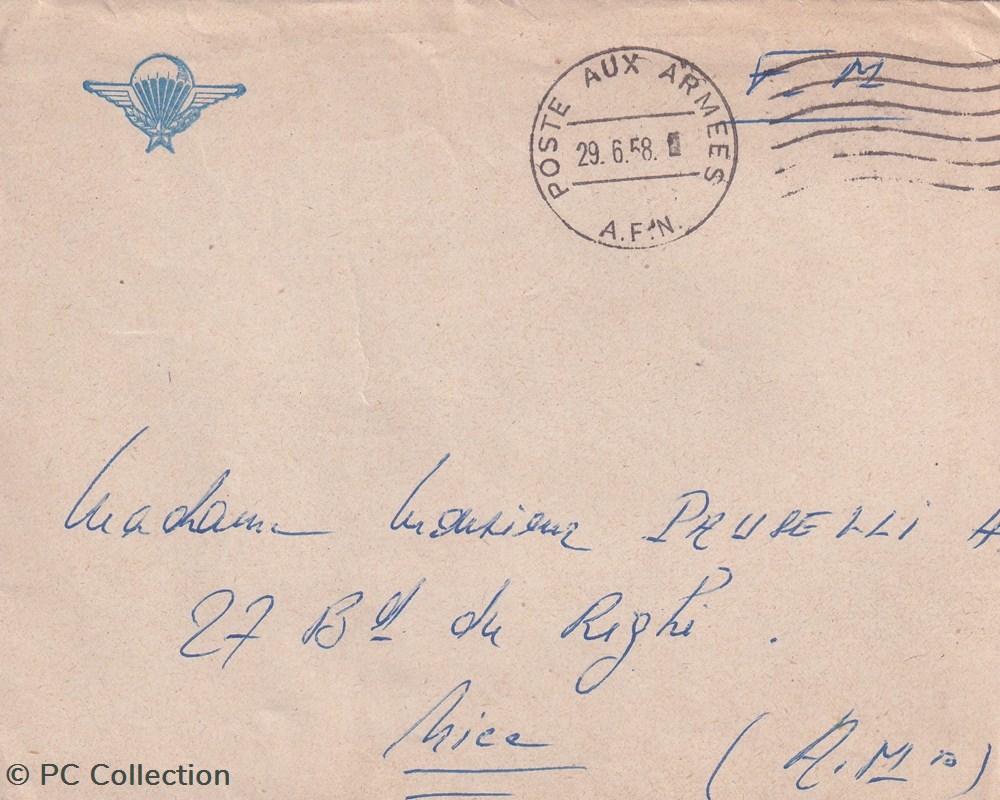 POSTE AUX ARMEES
29.6.58.
A.F.N.
F M
Madame Monsieur
27 Bd du Righi.
Nice (A.Mmes)
© PC Collection